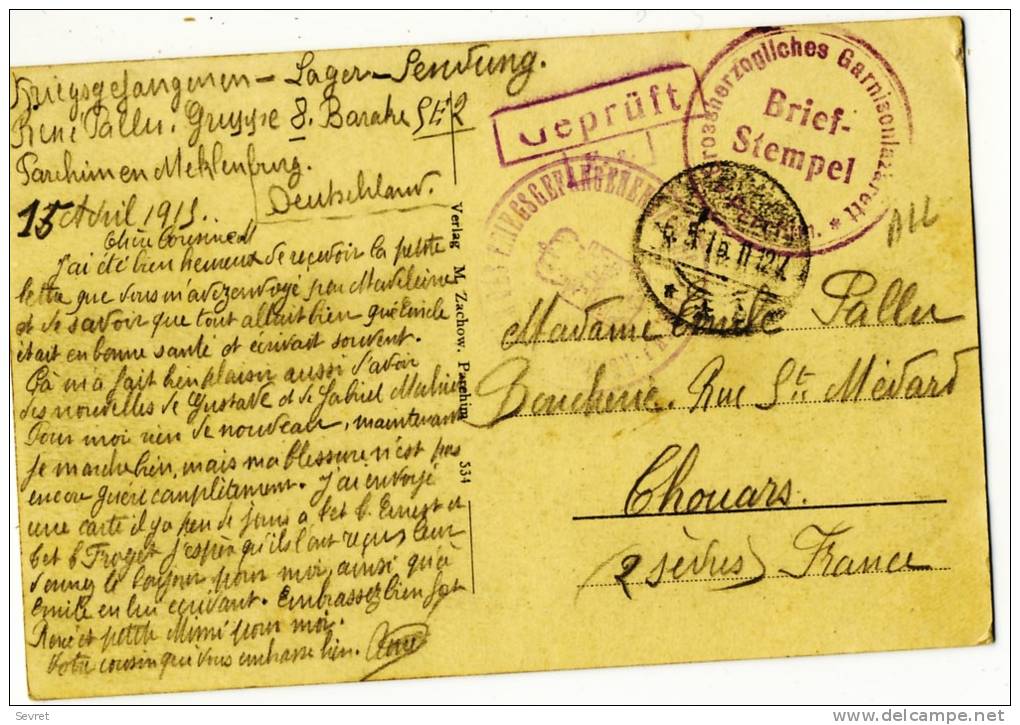 Kriegsgefangenen - Lager - Sendung.
René Pallu. Gruppe 8. Barake 5E2
Parchim en Meklenburg.
Deutschland.
15 Avril 1915.
Chère Cousine
J'ai été bien heureux de recevoir la petite
lettre que vous m'avez envoyé par Madeleine
et de savoir que tout allait bien qu'Emile
était en bonne santé et écrivait souvent.
Ça m'a fait bien plaisir aussi d'avoir
des nouvelles de Gustave et de Gabriel
Pour moi rien de nouveau, maintenant
je marche bien, mais ma blessure n'est pas
encore guérie complètement. J'ai envoyé
une carte il y a peu de jours à Ernest et
Froget j'espère qu'ils l'ont reçus leur
donnez le bonjour pour moi, ainsi qu'à
Emile en lui écrivant. Embrassez bien fort
René et petite Mimi pour moi.
Votre cousin qui vous embrasse bien. René
Verlag M. Zachow. Parchim 534
Geprüft
Grossherzogliches Garnisonlazarett
Brief-
Stempel
KRIEGSGEFANGENEN
All
Madame Emile Pallu
Boucherie. Rue St. Médard
Thouars.
(2 Sèvres) France
Sevret
www.delcampe.net